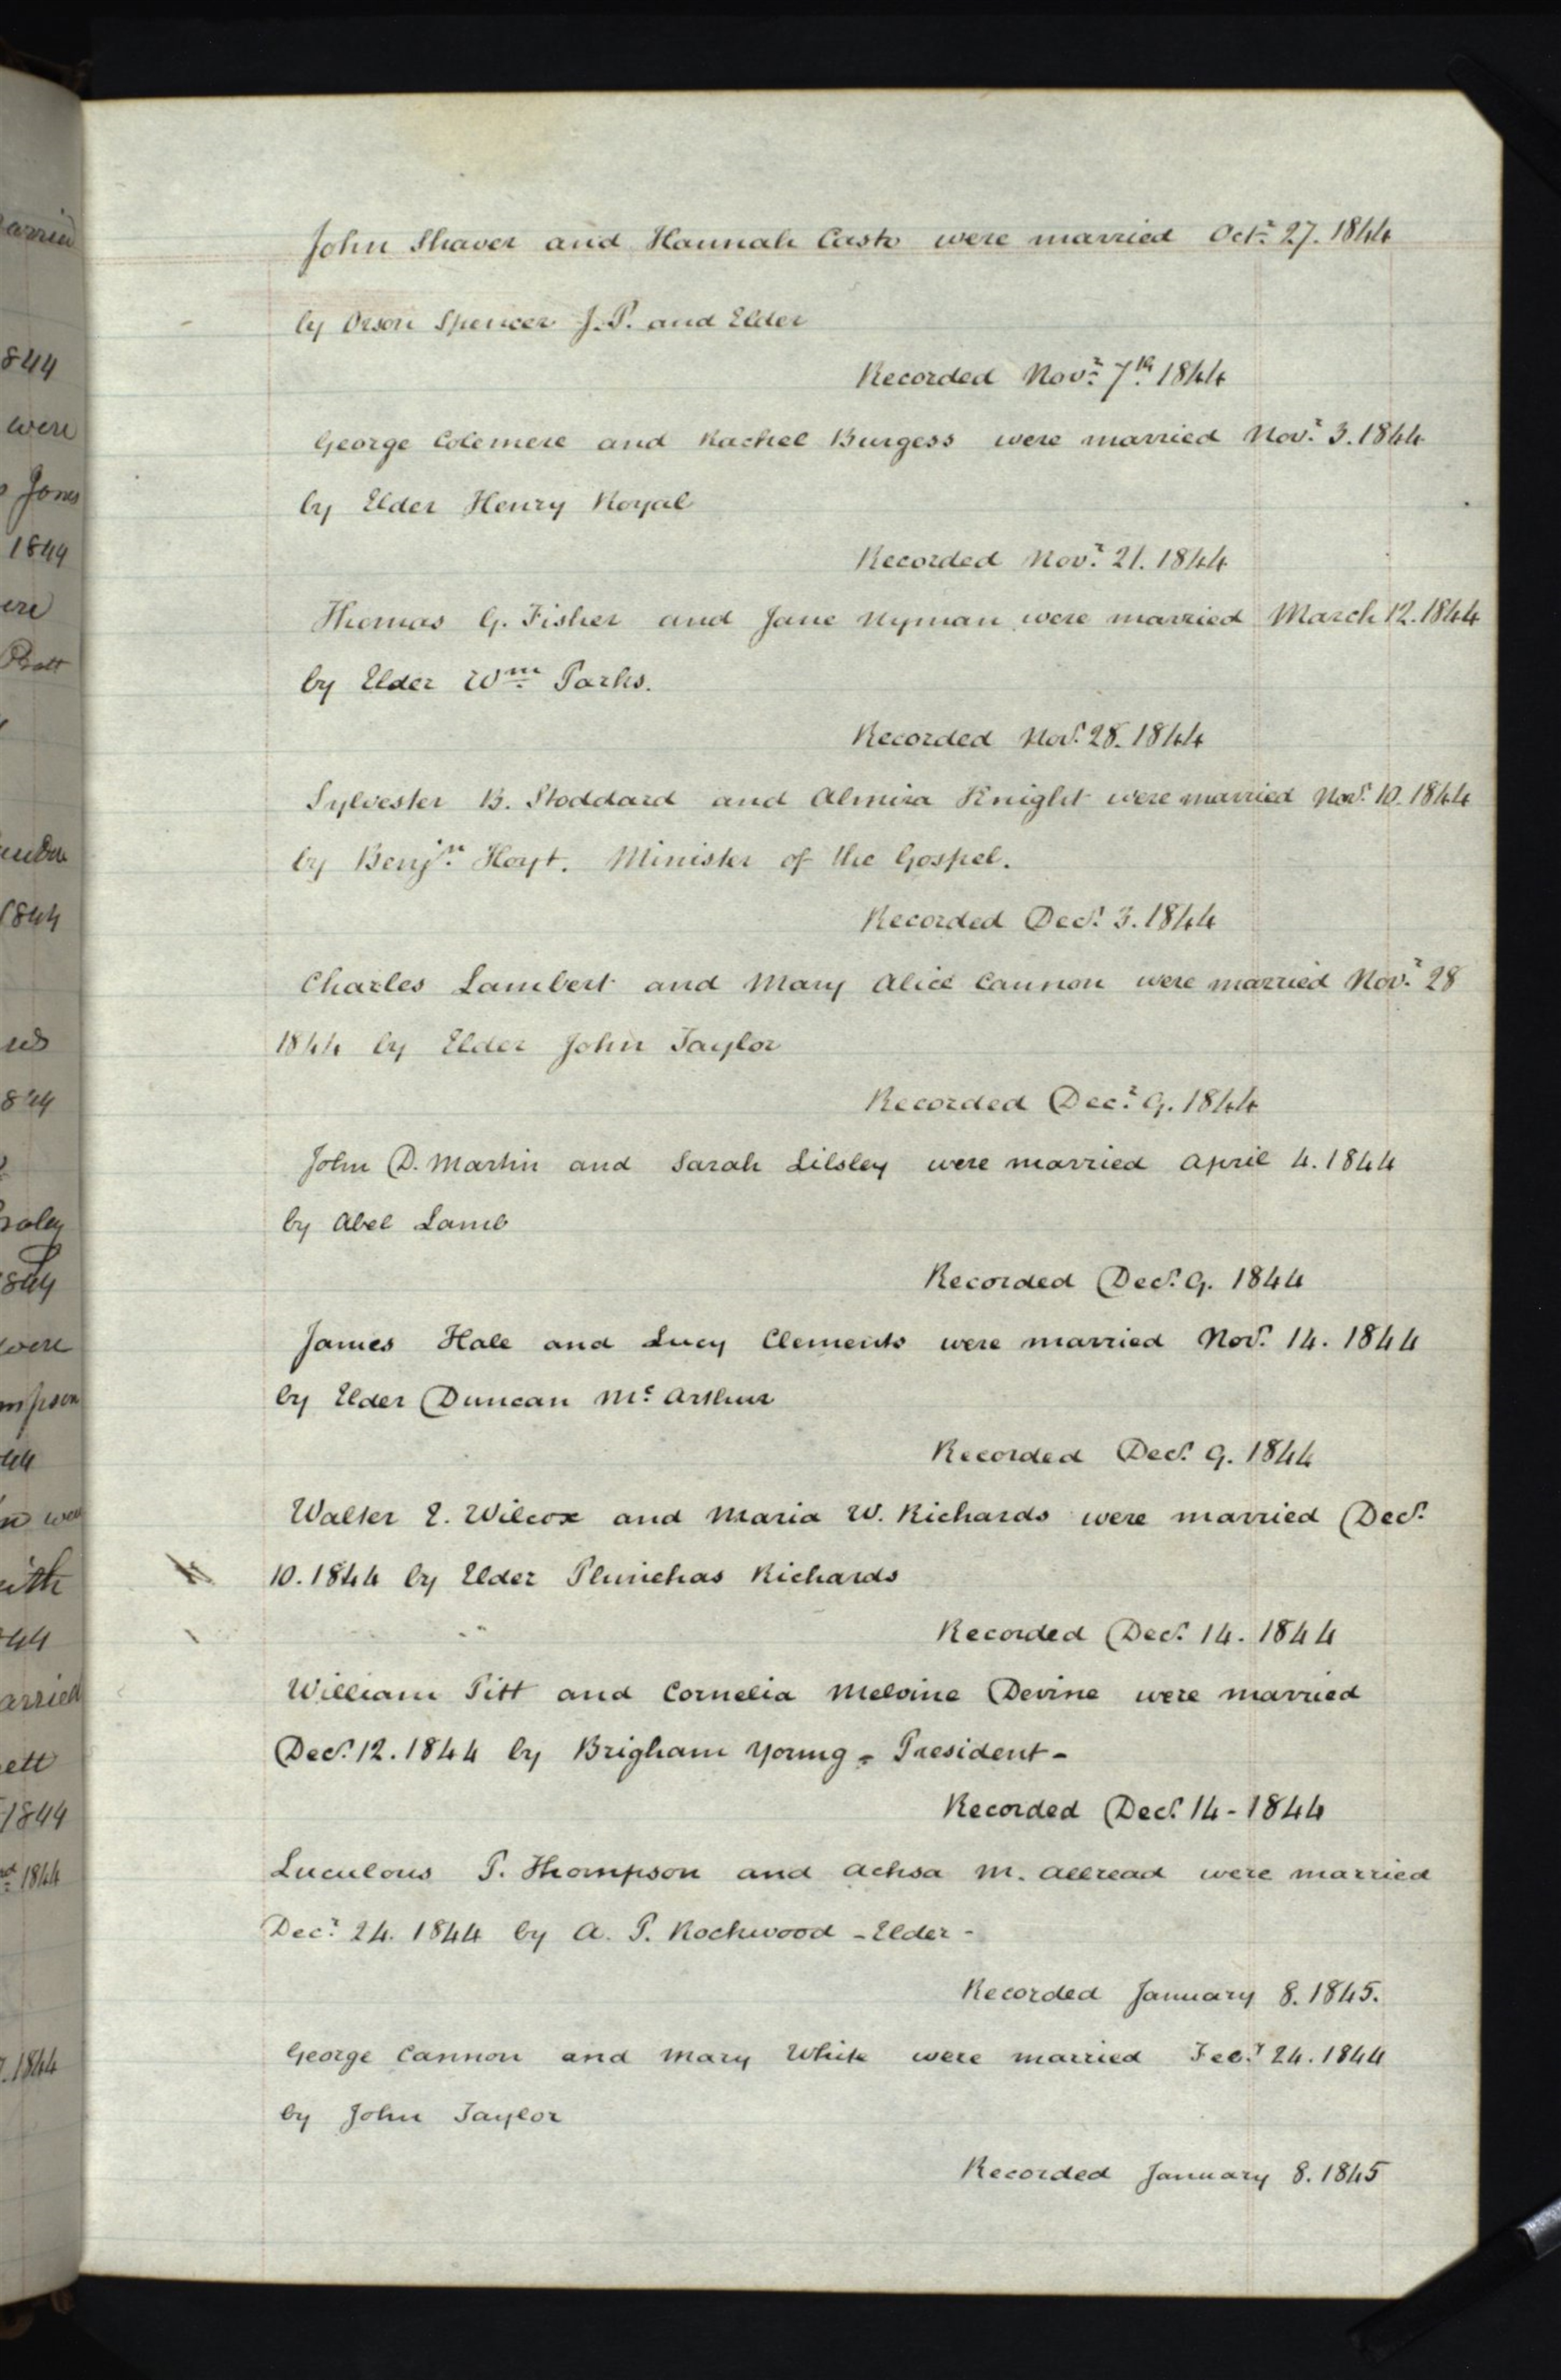 John Shaver and Hannah Casto were married Octr. 27. 1844
by Orson Spencer J.P. and Elder
Recorded Novr. 7th 1844
George Colemere and Rachel Burgess were married Novr. 3. 1844
by Elder Henry Royal
Recorded Novr. 21. 1844
Thomas G. Fisher and Jane Nyman were married March 12. 1844
by Elder Wm. Parks.
Recorded Novr. 28. 1844
Sylvester B. Stoddard and Almira Knight were married Novr. 10. 1844
by Benjn. Hoyt. Minister of the Gospel.
Recorded Decr. 3. 1844
Charles Lambert and Mary Alice Cannon were married Novr. 28
1844 by Elder John Taylor
Recorded Decr. 9. 1844
John D. Martin and Sarah Lilsley were married April 4. 1844
by Abel Lamb
Recorded Decr. 9. 1844
James Hale and Lucy Clements were married Novr. 14. 1844
by Elder Duncan Mc. Arthur
Recorded Decr. 9. 1844
Walter E. Wilcox and Maria W. Richards were married Decr.
10. 1844 by Elder Phinehas Richards
Recorded Decr. 14. 1844
William Pitt and Cornelia Melvine Devine were married
Decr. 12. 1844 by Brigham Young - President -
Recorded Decr. 14 - 1844
Luculous P. Thompson and Achsa M. Allread were married
Decr. 24. 1844 by A. P. Rockwood - Elder -
Recorded January 8. 1845.
George Cannon and Mary White were married Feby. 24. 1844
by John Taylor
Recorded January 8. 1845